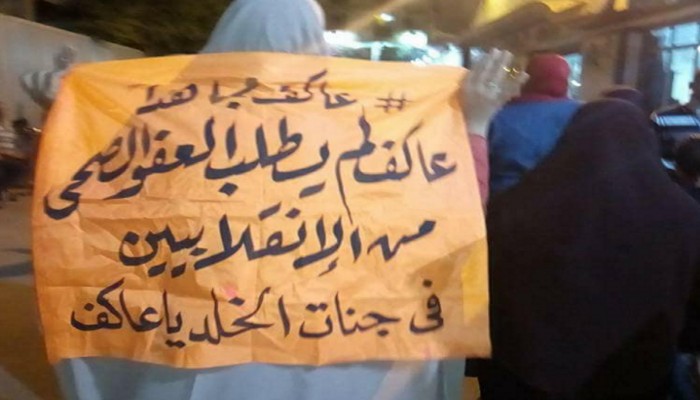 # عاكف مجاهدا
عاكف لم يطلب العفو الصحى
من الإنقلابيين
فى جنات الخلد يا عاكف